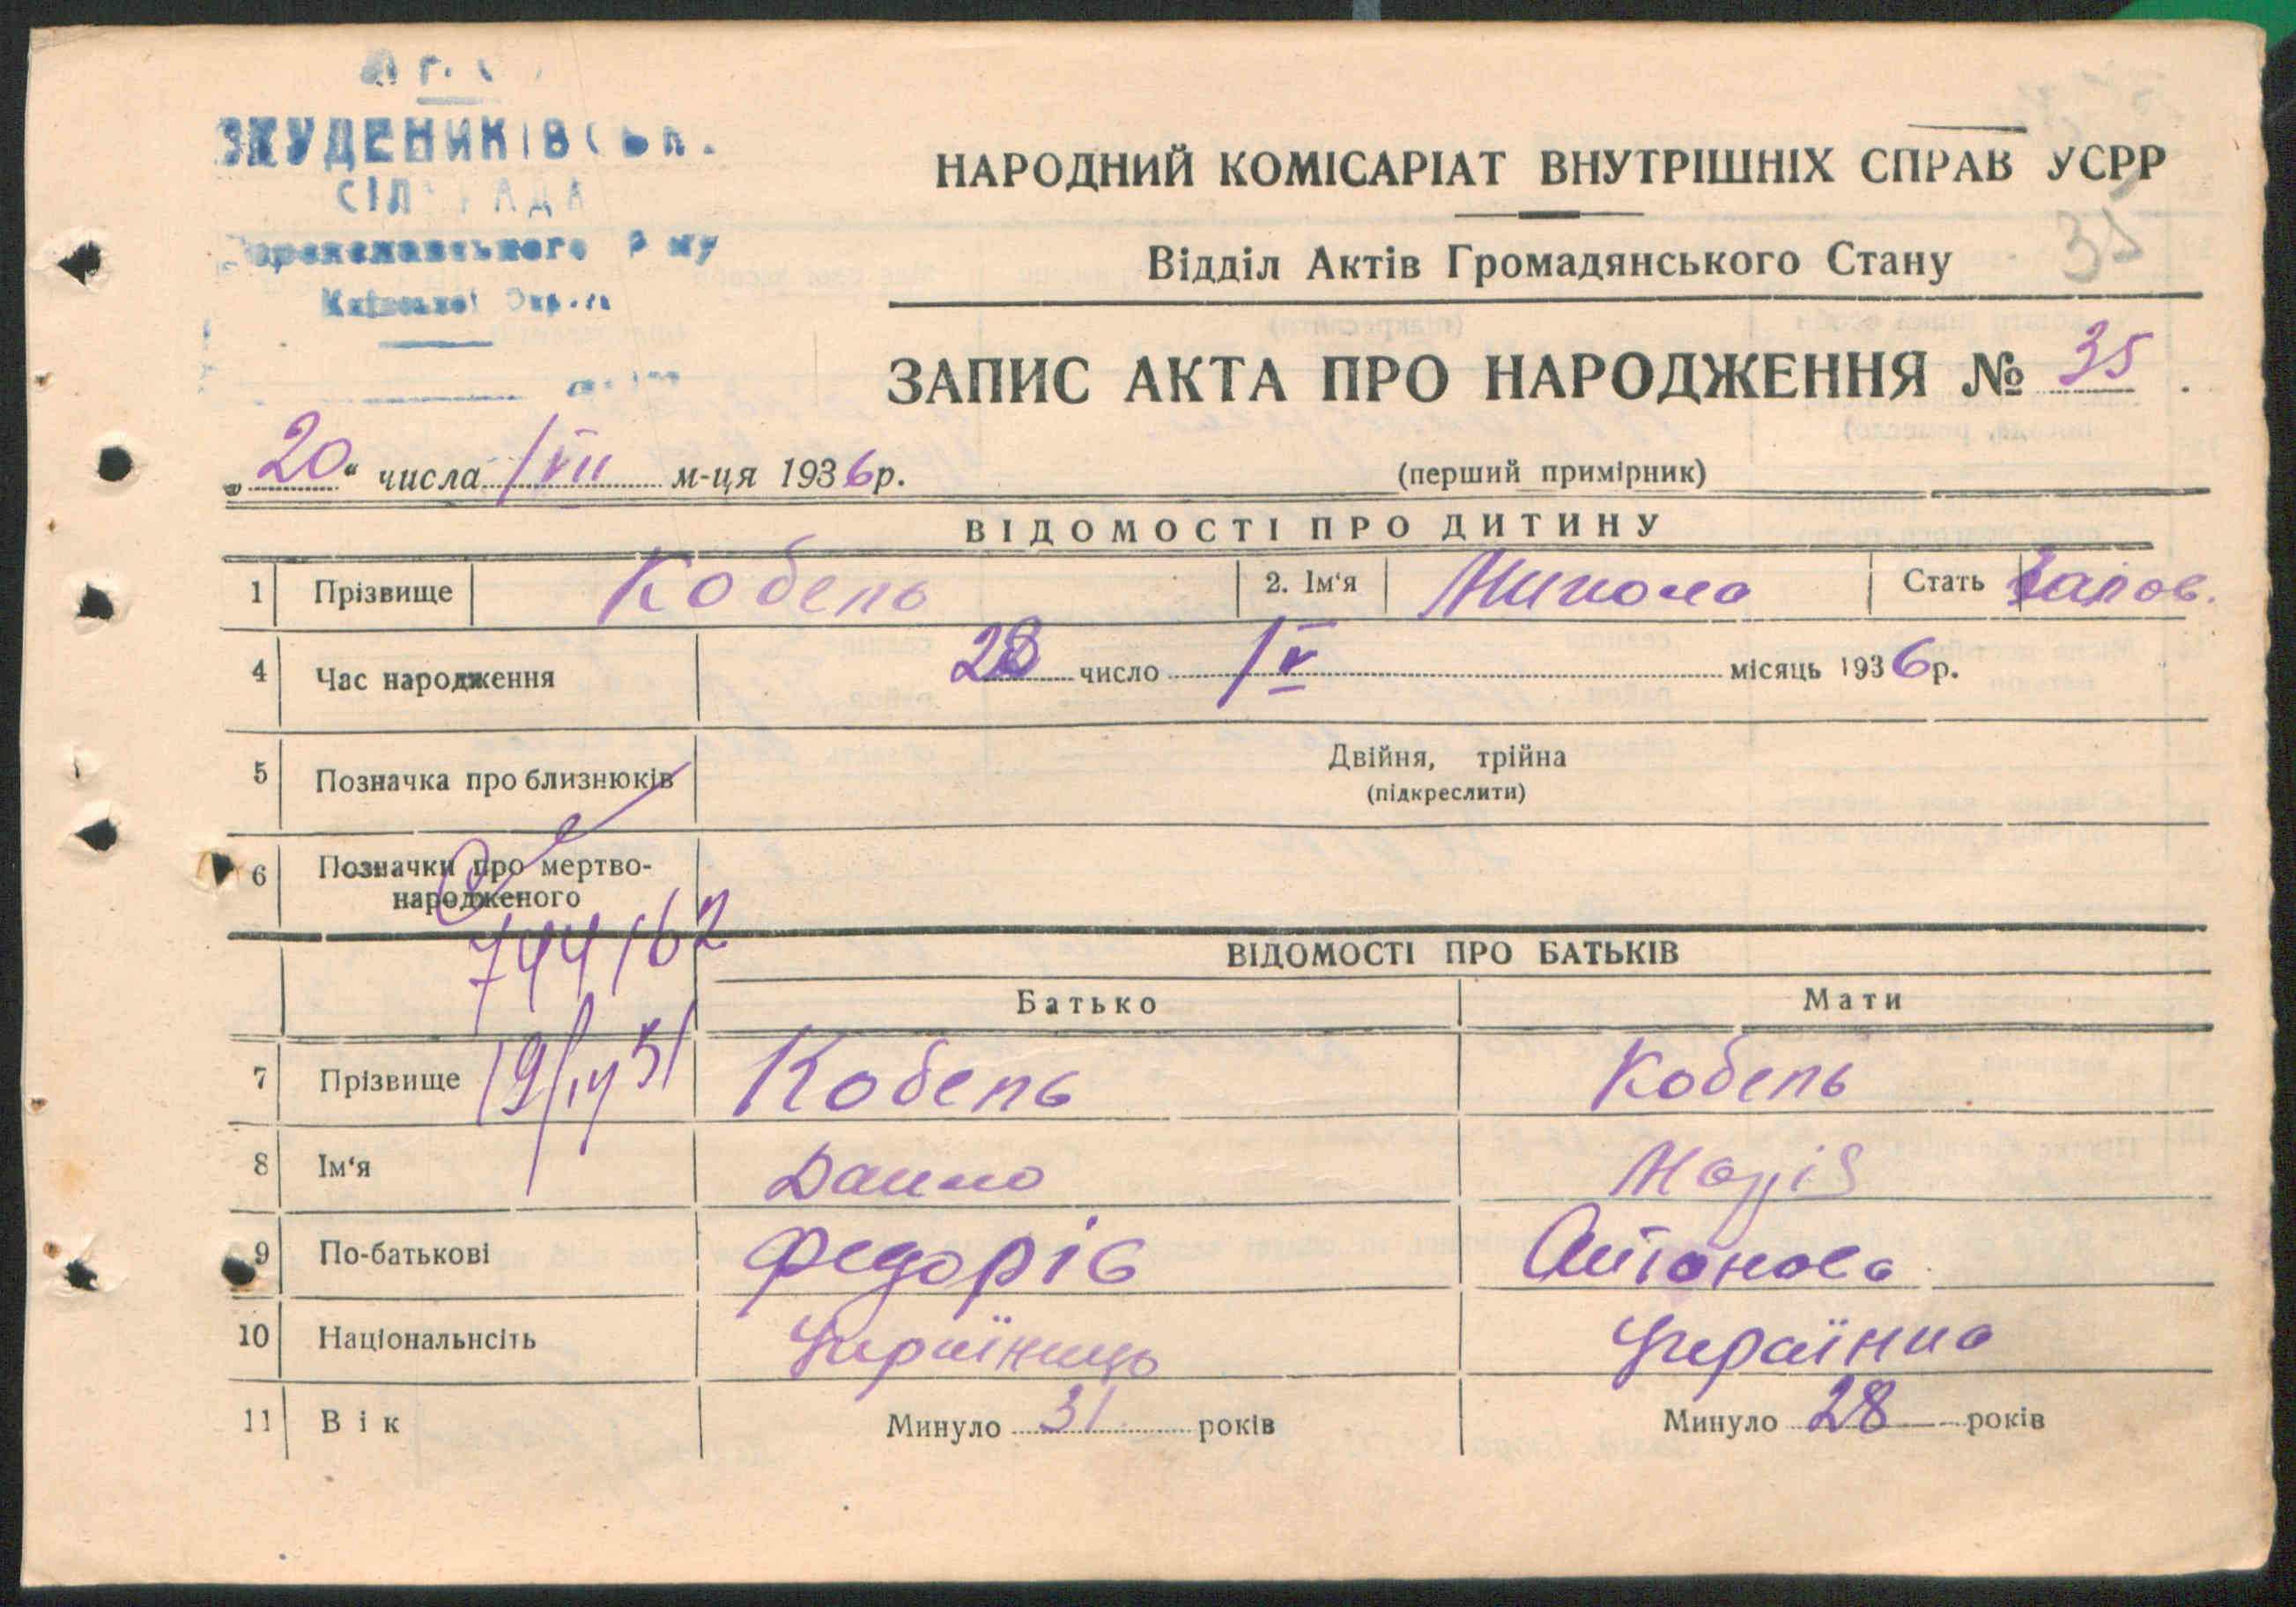 СІЛЬРАДА
НАРОДНИЙ КОМІСАРІАТ ВНУТРІШНІХ СПРАВ УСРР
35
Відділ Актів Громадянського Стану
ЗАПИС АКТА ПРО НАРОДЖЕННЯ № 35.
„20“ числа /VII м-ця 1936р.
(перший примірник)
ВІДОМОСТІ ПРО ДИТИНУ
1 Прізвище Кобель 2. Ім‘я Микола Стать
4 Час народження 28 число /V місяць 1936р.
5 Позначка про близнюків Двійня, трійна
(підкреслити)
6 Позначки про мертво-
народженого
744162
ВІДОМОСТІ ПРО БАТЬКІВ
Батько Мати
7 Прізвище Кобель Кобель
8 Ім‘я Данило Марія
9 По-батькові Федорів Антонова
10 Національнсіть Українець Українка
11 Вік Минуло 31 років Минуло 28 років